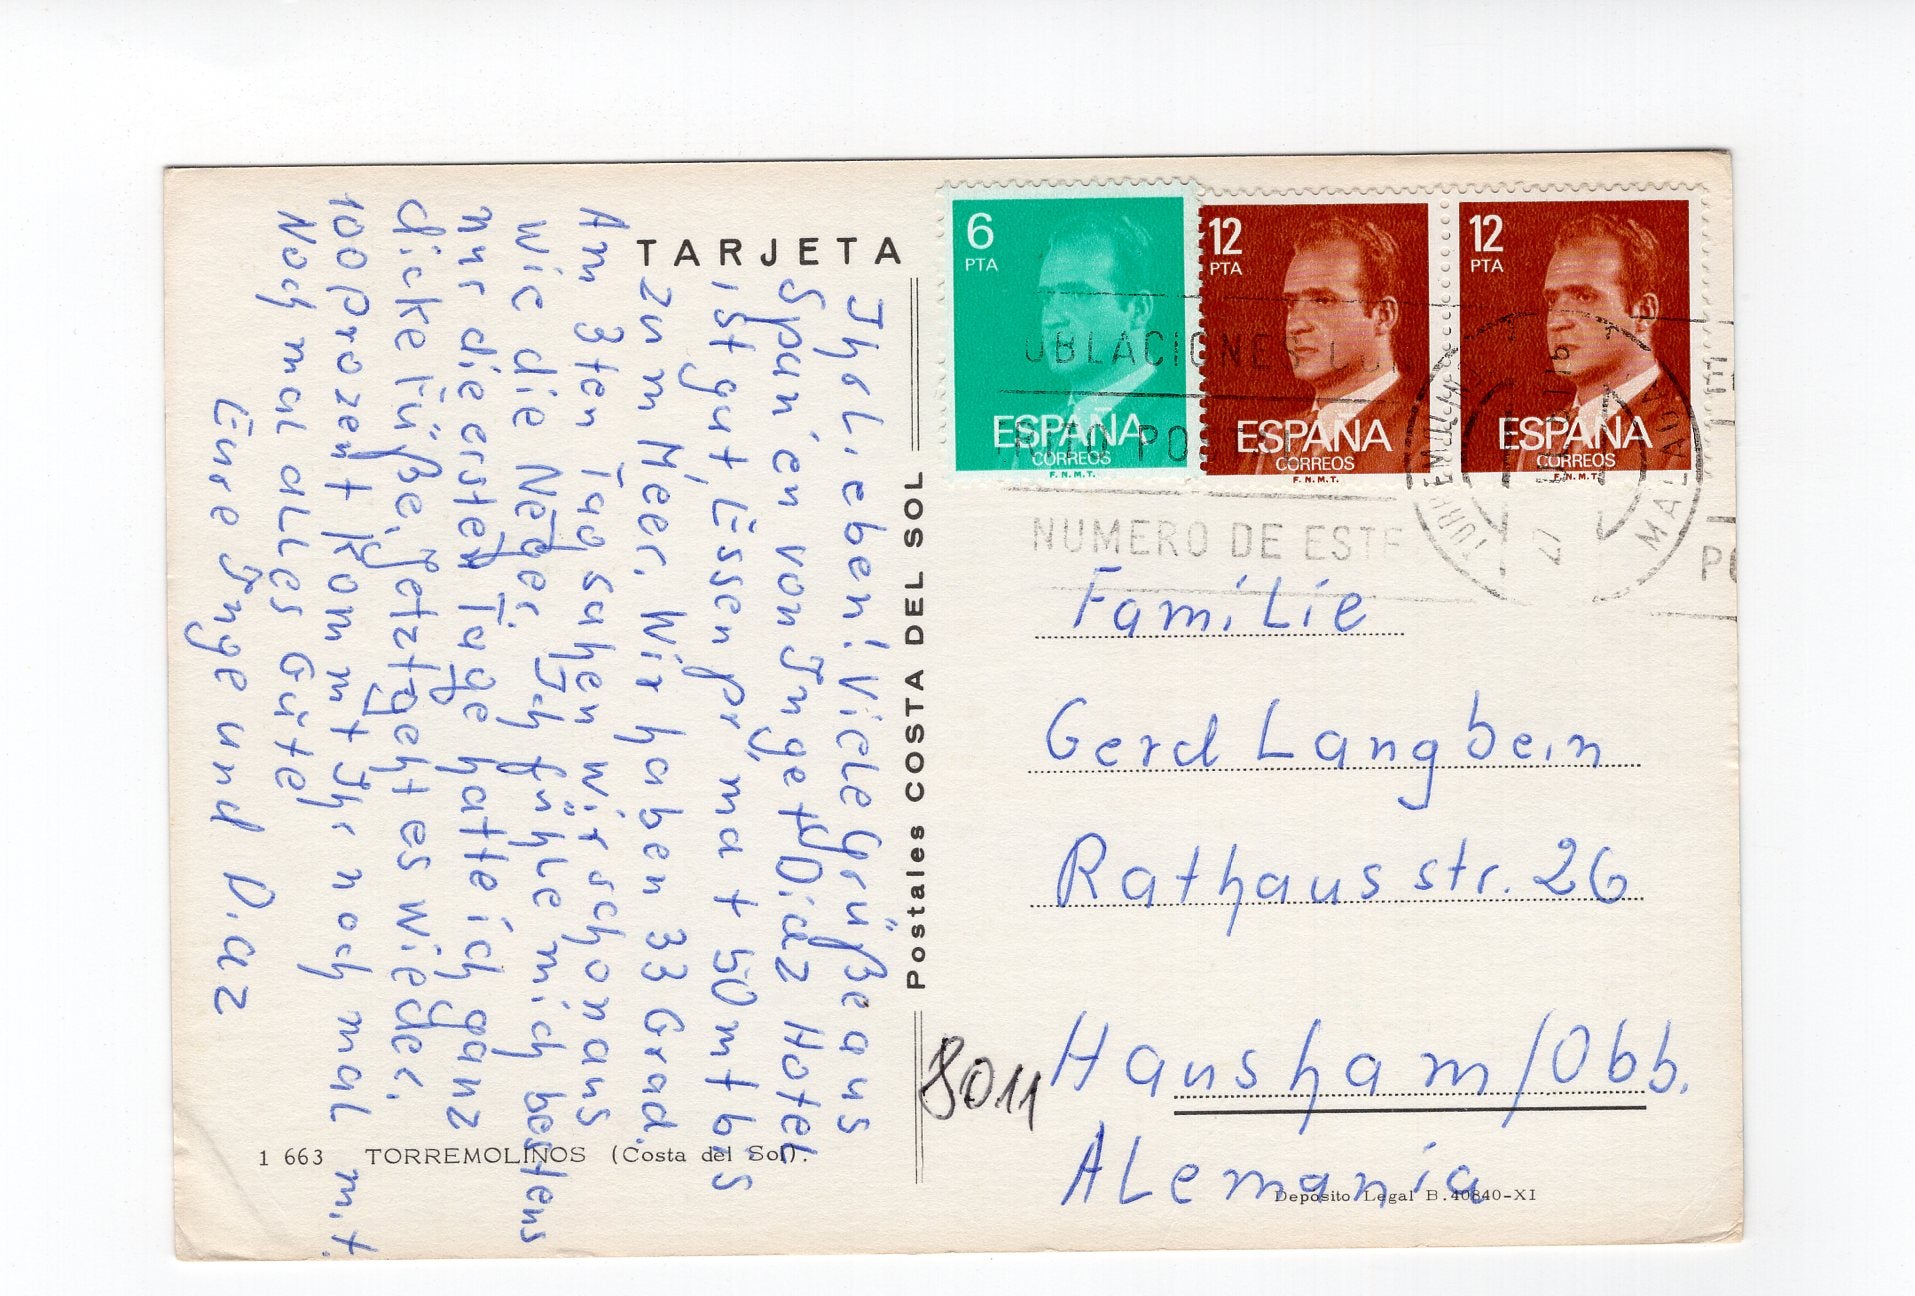 TARJETA
Ihr Lieben! Viele Grüße aus
Spanien von Inge + Diaz Hotel
ist gut, Essen prima + 50 mt bis
zum Meer. Wir haben 33 Grad.
Am 3ten Tag sahen wir schon aus
wie die Neger. Ich fühle mich bestens
nur die ersten Tage hatte ich ganz
dicke Füße, Jetzt geht es wieder.
100 Prozent kommt Ihr noch mal mit.
Noch mal alles Güte!
Eure Inge und Diaz
1 663 TORREMOLINOS (Costa del Sol).
Postales COSTA DEL SOL
6
PTA
ESPAÑA
CORREOS
F.N.M.T.
12
PTA
ESPAÑA
CORREOS
F.N.M.T.
12
PTA
ESPAÑA
CORREOS
F.N.M.T.
NUMERO DE ESTE
Familie
Gerd Langbein
Rathausstr. 26
8011 Hausham/Obb.
Alemania
Deposito Legal B. 40840-XI